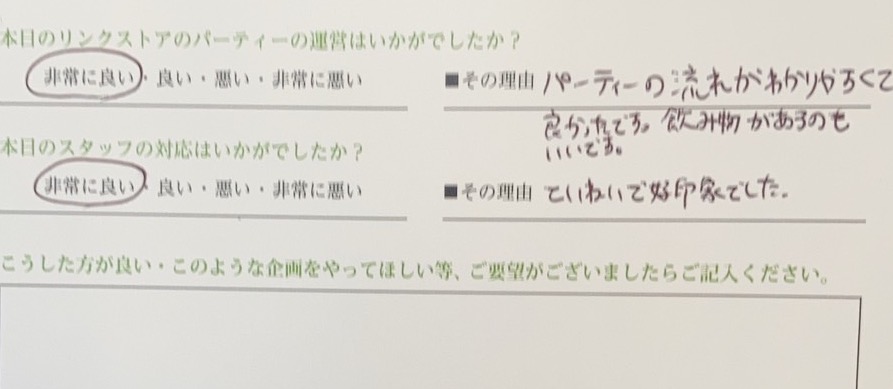 本日のリンクストアのパーティーの運営はいかがでしたか？
非常に良い・良い・悪い・非常に悪い ■その理由 パーティーの流れがわかりやすくて
良かったです。飲み物があるのも
いいです。
本日のスタッフの対応はいかがでしたか？
非常に良い・良い・悪い・非常に悪い ■その理由 ていねいで好印象でした。
こうした方が良い・このような企画をやってほしい等、ご要望がございましたらご記入ください。